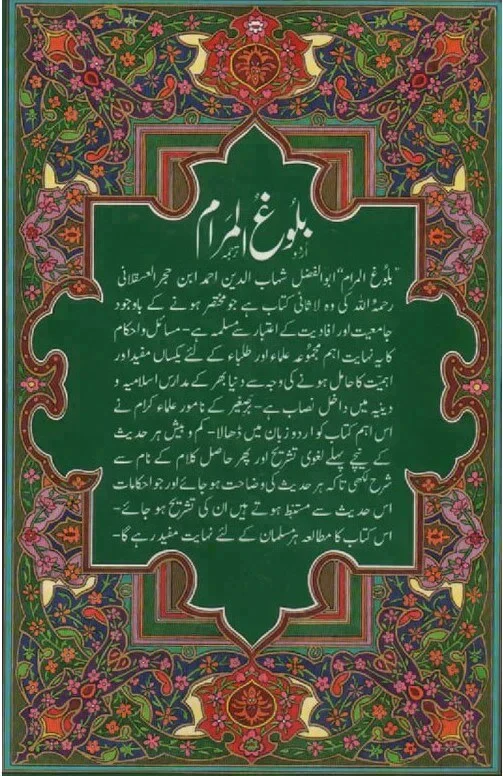 بلوُغُ المرَام
اُردُو ترجمہ
"بلوُغ المرام" ابوالفضل شہاب الدین احمد ابن حجرالعسقلانی
رحمۃ اللہ کی وہ لاثانی کتاب ہے جو مختصر ہونے کے باوجود
جامعیت اور افادیت کے اعتبار سے مسلمہ ہے۔ مسائل و احکام
کا یہ نہایت اہم مجموعہ علماء اور طلباء کے لئے یکساں مفید اور
اہمیت کا حامل ہونے کی وجہ سے دنیا بھر کے مدارس اسلامیہ و
دینیہ میں داخل نصاب ہے۔ برِصغیر کے نامور علماء کرام نے
اس اہم کتاب کو اردو زبان میں ڈھالا۔ کم و بیش ہر حدیث
کے نیچے پہلے لغوی تشریح اور پھر حاصل کلام کے نام سے
شرح لکھی تاکہ ہر حدیث کی وضاحت ہو جائے اور جو احکامات
اس حدیث سے مستنبط ہوتے ہیں ان کی تشریح ہو جائے۔
اس کتاب کا مطالعہ ہر مسلمان کے لئے نہایت مفید رہے گا۔